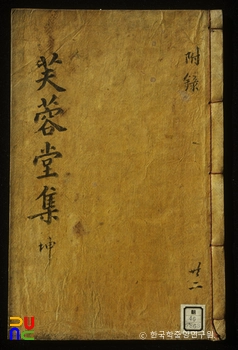 附錄
芙蓉堂集 坤
共二
© 한국학중앙연구원